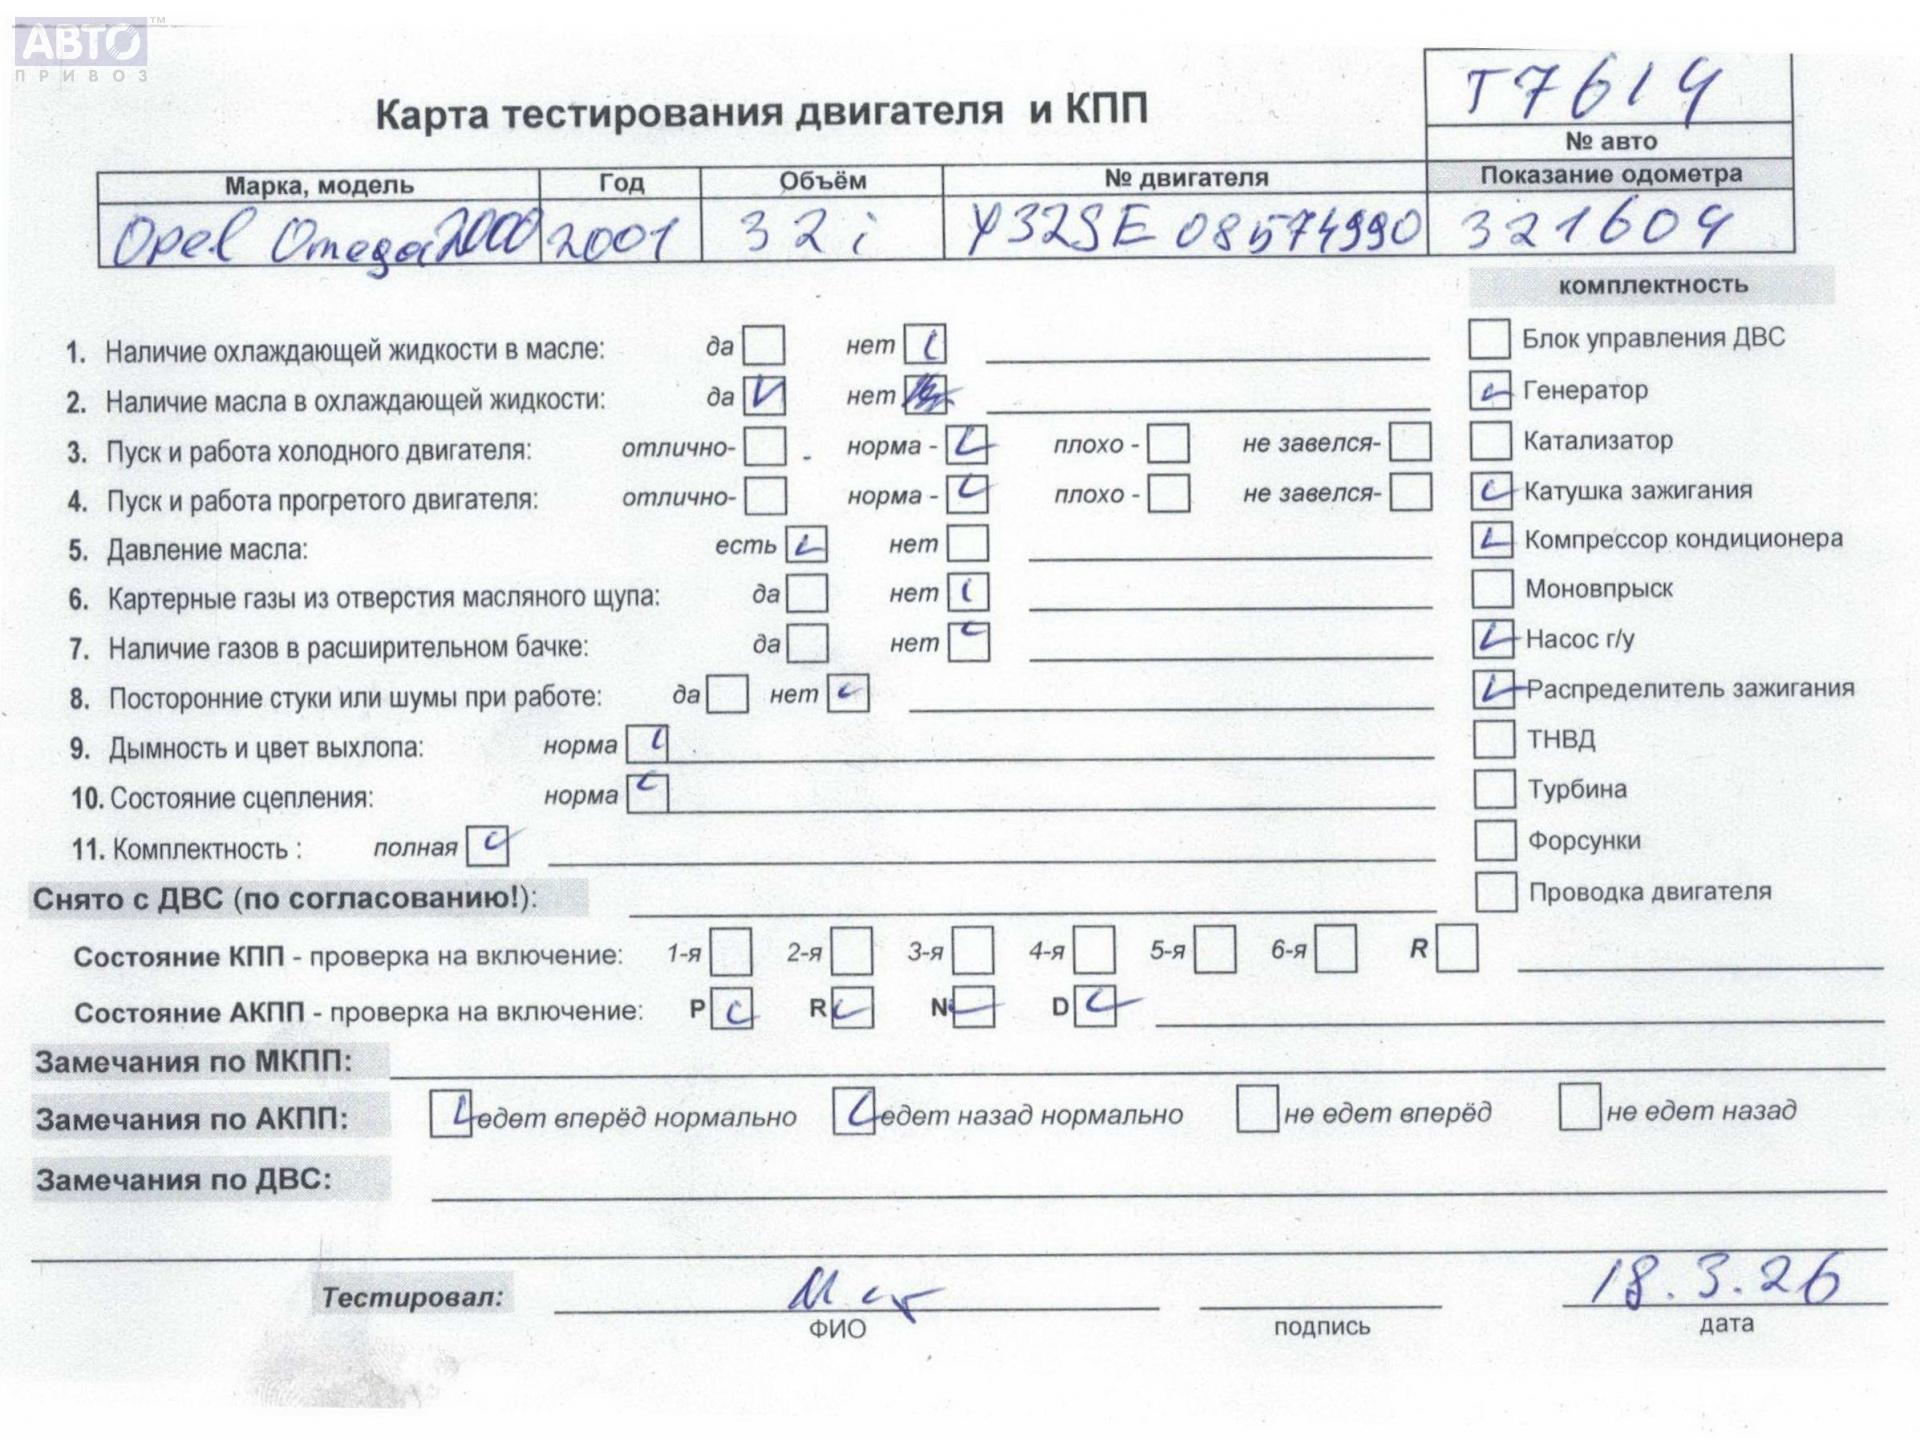 АВТО™
ПРИВОЗ
Т7614
№ авто
Карта тестирования двигателя и КПП
Марка, модель Год Объём № двигателя Показание одометра
Opel Omega 2000 2001 32i Y32SE 08574990 321604
комплектность
1. Наличие охлаждающей жидкости в масле: да нет
2. Наличие масла в охлаждающей жидкости: да нет
3. Пуск и работа холодного двигателя: отлично- норма - плохо - не завелся-
4. Пуск и работа прогретого двигателя: отлично- норма - плохо - не завелся-
5. Давление масла: есть нет
6. Картерные газы из отверстия масляного щупа: да нет
7. Наличие газов в расширительном бачке: да нет
8. Посторонние стуки или шумы при работе: да нет
9. Дымность и цвет выхлопа: норма
10. Состояние сцепления: норма
11. Комплектность : полная
Блок управления ДВС
Генератор
Катализатор
Катушка зажигания
Компрессор кондиционера
Моновпрыск
Насос г/у
Распределитель зажигания
ТНВД
Турбина
Форсунки
Проводка двигателя
Снято с ДВС (по согласованию!):
Состояние КПП - проверка на включение: 1-я 2-я 3-я 4-я 5-я 6-я R
Состояние АКПП - проверка на включение: P R N D
Замечания по МКПП:
Замечания по АКПП: едет вперёд нормально едет назад нормально не едет вперёд не едет назад
Замечания по ДВС:
Тестировал: 18.3.26
ФИО подпись дата